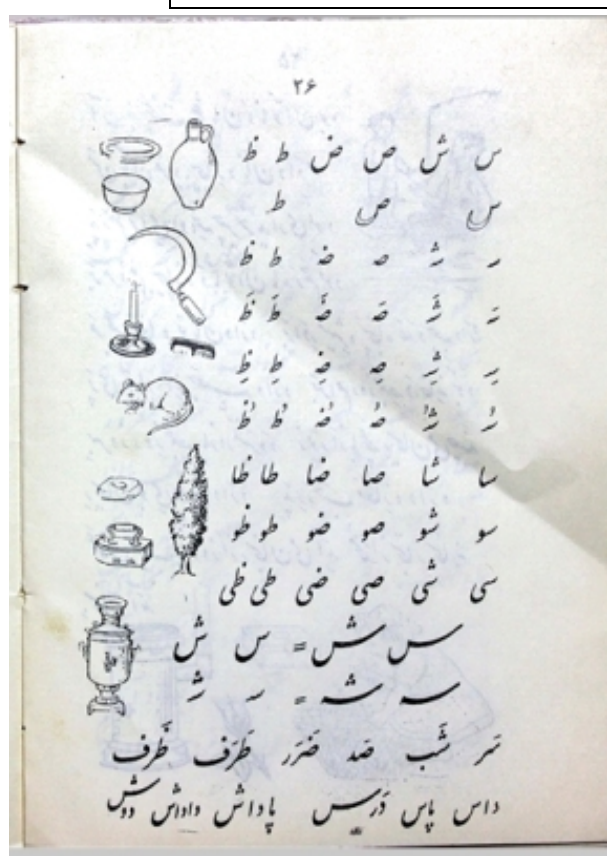 ۲۶
س ش ص ض ط ظ
س ص ط
سـ شـ صـ ضـ ط ظ
سَـ شَـ صَـ ضَـ طَ ظَ
سِـ شِـ صِـ ضِـ طِ ظِ
سُـ شُـ صُـ ضُـ طُ ظُ
سا شا صا ضا طا ظا
سو شو صو ضو طو ظو
سی شی صی ضی طی ظی
س ش = س ش
سـ شـ = سـ شـ
سَر شَب صَد ضَرَر طَرَف ظَرف
داس پاس دَرس پاداش داداش دوش